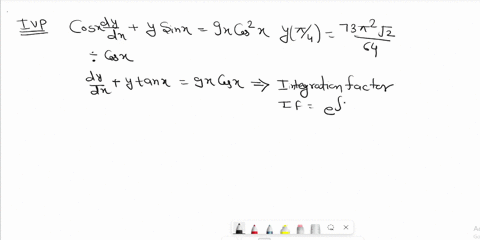 IVP Cosx dy/dx + y Sinx = 9x Cos²x y(π/4) = 73π²√2/64
÷ Cosx
dy/dx + y tanx = 9x Cosx ⇒ Integration factor
IF = e^∫